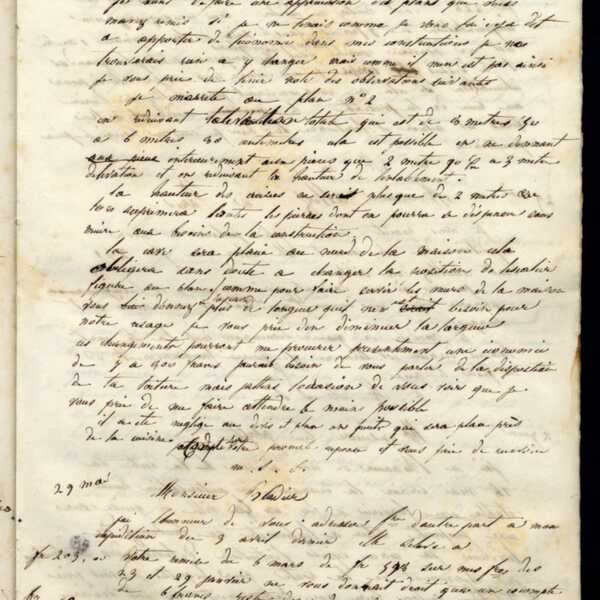 pas dans de faire une appréciation des plans que vous
m'avez remis si je ne tenais comme je vous l'ai déjà dit
a apporter de l'économie dans mes constructions je ne
trouverais rien a y changer mais comme il n'en est pas ainsi
je vous prie de tenir note des observations suivantes
je m'arrete au plan n° 2
en réduisant l'élévation totale qui est de 8 metres
a 6 metres 30 centimetres cela est possible en ne donnant
interieurement aux pieces que 2 metre 90 a 3 metre
d'elevation et en réduisant la hauteur de l'entablement
la hauteur des croisées ne serait plus que de 2 metres
supprimera toutes les pierres dont on pourra se dispenser sans
nuire aux besoins de la construction
la cave sera placée au nord de la maison cela
obligera sans doute a changer la position de l'escalier
figuré au plan comme pour faire servir les murs de la maison
vous lui donnerez plus de longueur qu'il n'en est besoin pour
notre usage je vous prie d'en diminuer la largeur
ces changements pourront me procurer présentement une économie
de francs j'aurais besoin de vous parler de la disposition
de la toiture mais j'attens l'occasion de vous voir que je
vous prie de me faire attendre le moins possible
il a été négligé au devis et plan un puits qui sera placé près
de la cuisine votre prompte reponse et vous prie de recevoir
m. s. s.
29 mai Monsieur
j'ai l'honneur de vous adresser d'autre part a mon
expédition du 3 avril dernier
fr 203. votre remise du 6 mars de fr 598 sur mes fres des
23 et 29 janvier ne vous donnait droit que a un escompte
de 6 francs